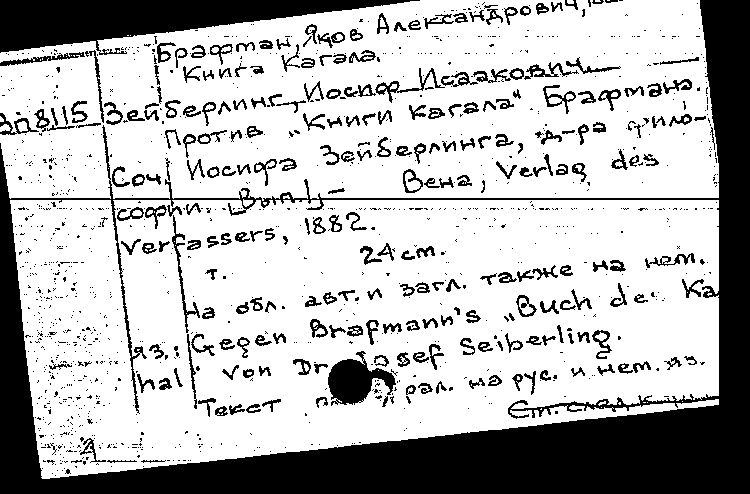 Брафман, Яков Александрович,
Книга Кагала.
Зп8115 Зейберлинг, Иосиф Исаакович.
Против „Книги Кагала" Брафмана.
Соч. Иосифа Зейберлинга, д-ра фило-
софии. [Вып.1]- Вена, Verlag des
Verfassers, 1882.
т. 24 см.
На обл. авт. и загл. также на нем.
яз.: Gegen Brafmann's „Buch de Ka
hal" von Dr Josef Seiberling.
Текст рал. на рус. и нем. яз.
См. след. к